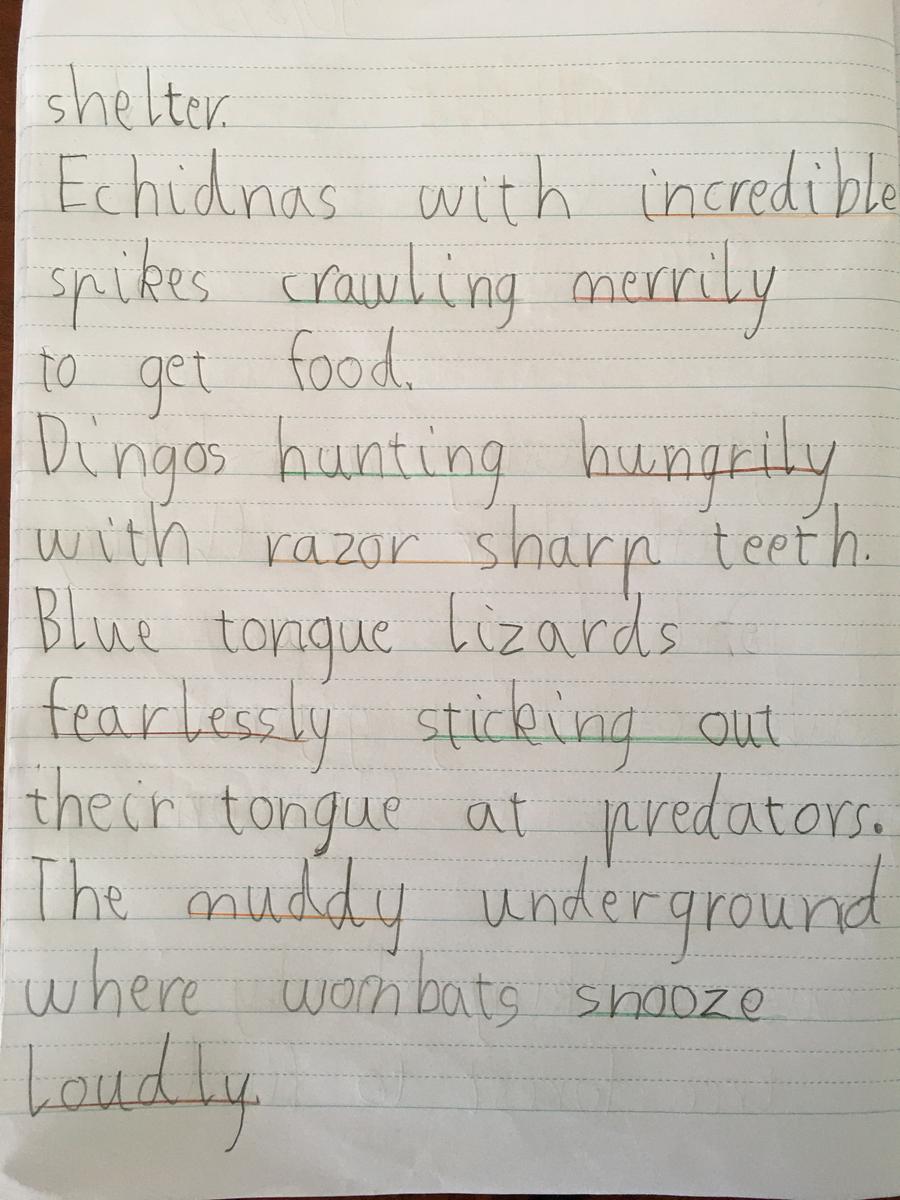 shelter.
Echidnas with incredible
spikes crawling merrily
to get food.
Dingos hunting hungrily
with razor sharp teeth.
Blue tongue lizards
fearlessly sticking out
their tongue at predators.
The muddy underground
where wombats snooze
Loudly.